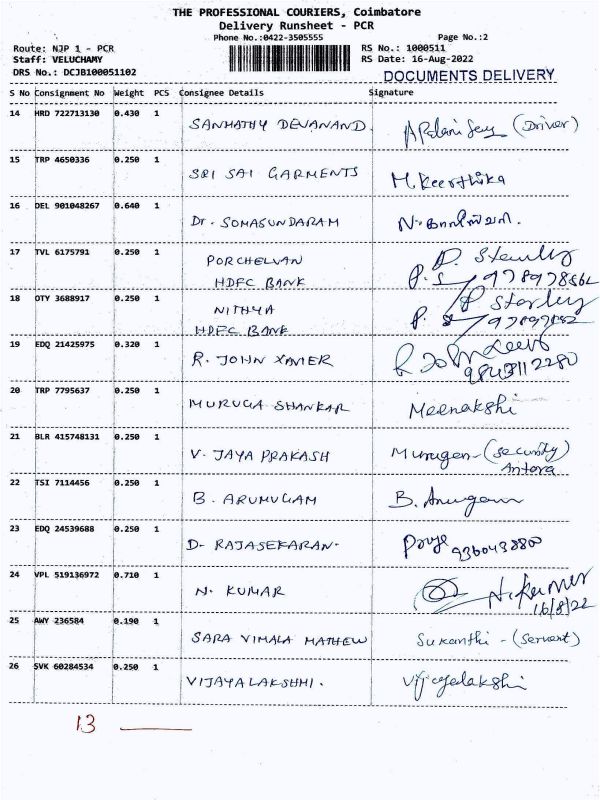 THE PROFESSIONAL COURIERS, Coimbatore
Delivery Runsheet - PCR
Phone No.:0422-3505555
Page No.:2
Route: NJP 1 - PCR
RS No.: 1000511
Staff: VELUCHAMY
RS Date: 16-Aug-2022
DRS No.: DCJB100051102
DOCUMENTS DELIVERY
S No Consignment No Weight PCS Consignee Details Signature
14 HRD 722713130 0.430 1 SANMATHY DEVANAND. (Driver)
15 TRP 4650336 0.250 1 SRI SAI GARMENTS M. Keerthika
16 DEL 901048267 0.640 1 Dr. SOMASUNDARAM
17 TVL 6175791 0.250 1 PORCHELVAN
HDFC BANK
18 OTY 3688917 0.250 1 NITHYA
HDFC BANK
19 EDQ 21425975 0.320 1 R. JOHN XAVIER
9843112280
20 TRP 7795637 0.250 1 MURUGA SHANKAR Meenakshi
21 BLR 415748131 0.250 1 V. JAYA PRAKASH Murugan - (security)
Antora
22 TSI 7114456 0.250 1 B. ARUMUGAM
23 EDQ 24539688 0.250 1 D. RAJASEKARAN.
24 VPL 519136972 0.710 1 N. KUMAR N. Kumar
16/8/22
25 AWY 236584 0.190 1 SARA VIMALA MATHEW Sukanthi - (servant)
26 SVK 60284534 0.250 1 VIJAYALAKSHMI. Vijayalakshi
13